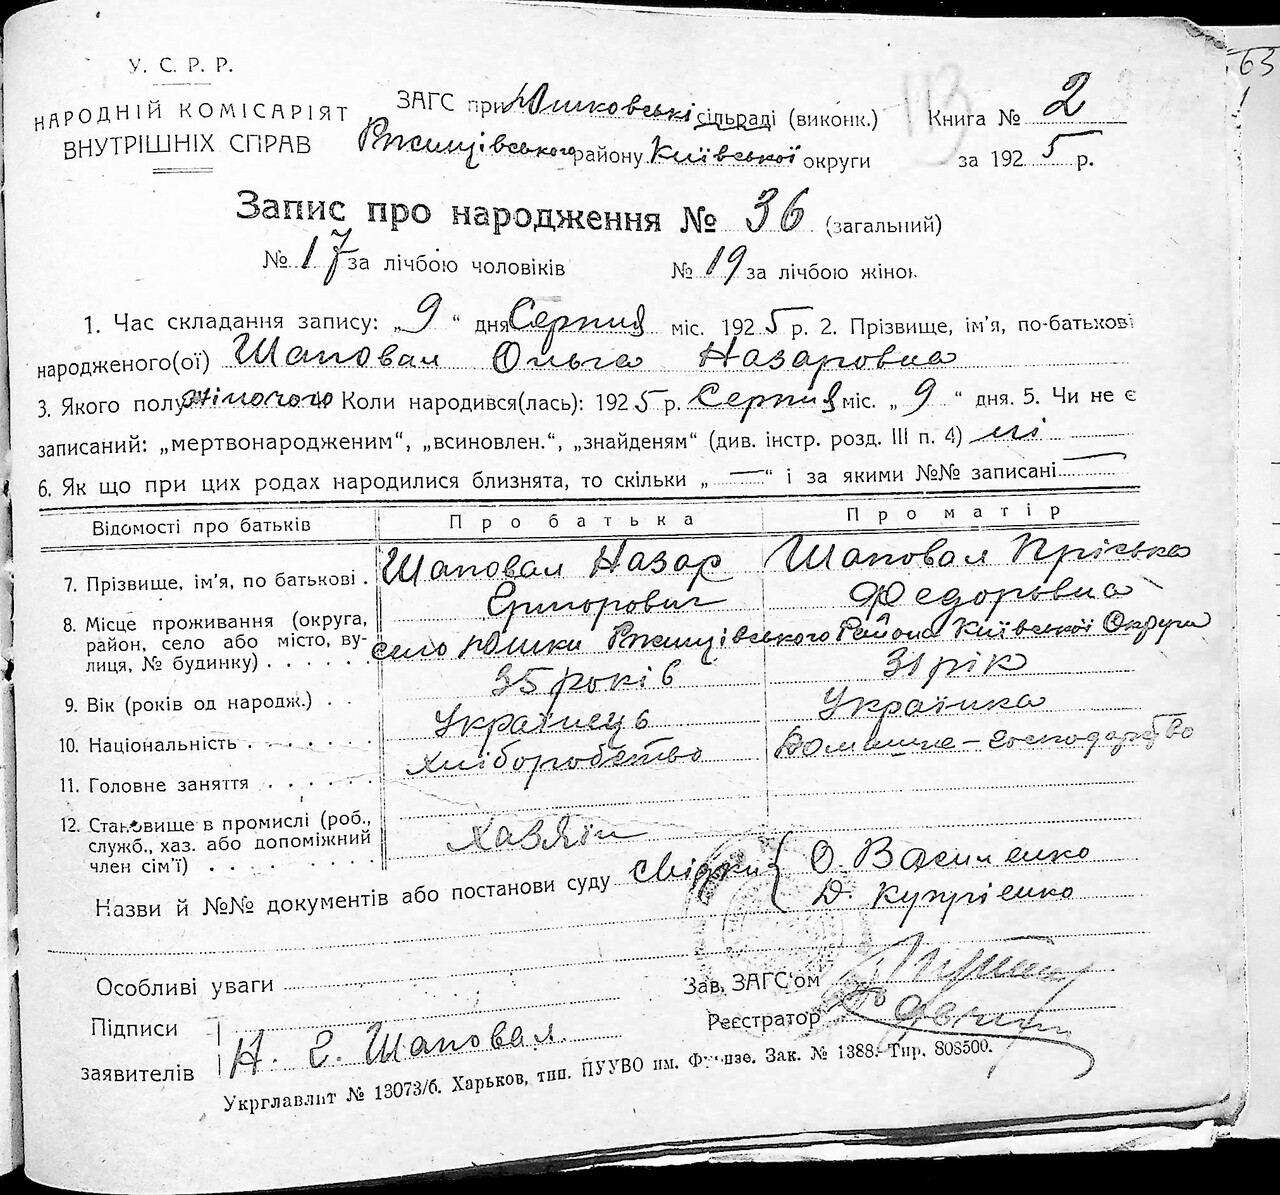 У. С. Р. Р.
НАРОДНІЙ КОМІСАРІЯТ
ВНУТРІШНІХ СПРАВ
ЗАГС при Юшковські сільраді (виконк.)
Ржищівського району Київської округи
113
Книга № 2
за 1925 р.
63
Запис про народження № 36 (загальний)
№ 17 за лічбою чоловіків № 19 за лічбою жінок
1. Час складання запису: „9“ дня Серпня міс. 1925 р. 2. Прізвище, ім'я, по-батькові
народженого(ої) Шаповал Ольга Назаровна
3. Якого полу жіночого Коли народився(лась): 1925 р. Серпня міс. „9“ дня. 5. Чи не є
записаний: „мертвонародженим“, „всиновлен.“, „знайденям“ (див. інстр. розд. III п. 4) ні
6. Як що при цих родах народилися близнята, то скільки „—“ і за якими №№ записані —
Відомості про батьків Про батька Про матір
7. Прізвище, ім'я, по батькові . Шаповал Назар Єгорович Шаповал Пріська Федоровна
8. Місце проживання (округа, район, село або місто, вулиця, № будинку) . . . . . село Юшки Ржищівського Района Київської Округи
9. Вік (років од народж.) . . 35 років 31 рік
10. Національність . . . . . . Українець Українка
11. Головне заняття . . . . . . Хліборобство Домашнє-господарство
12. Становище в промислі (роб., служб., хаз. або допоміжний член сім'ї) . . . . . Хазяїн
Назви й №№ документів або постанови суду Свідки { О. Василенко
Д. Купрієнко
Особливі уваги
Зав. ЗАГС'ом
Підписи
заявителів Н. Е. Шаповал
Реєстратор
Укрглавліт № 13073/б. Харьков, тип. ПУУВО им. Фрунзе. Зак. № 1388. Тир. 808500.